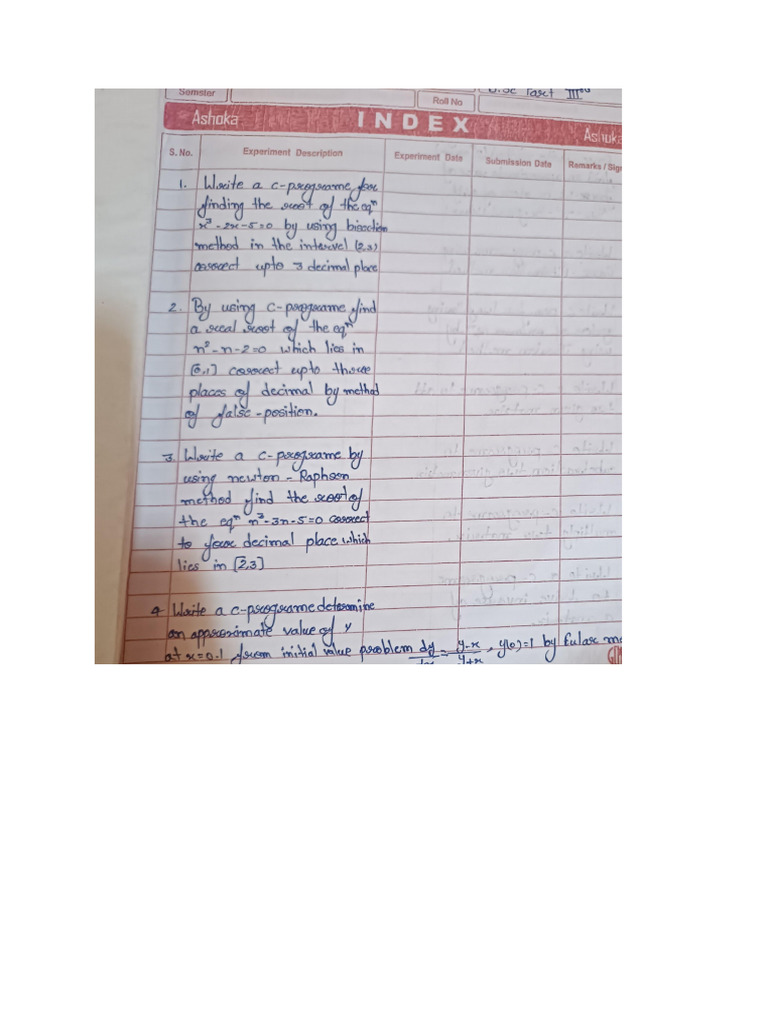 Semster
Roll No
Part III
Ashoka INDEX Ashoka
S. No. Experiment Description Experiment Date Submission Date Remarks / Sign
1. Write a c-programe for
finding the root of the eqⁿ
x³-2x-5=0 by using bisection
method in the intervel (2,3)
correct upto 3 decimal place
2. By using c-programe find
a real root of the eqⁿ
n²-n-2=0 which lies in
[0,1] correct upto three
places of decimal by method
of false-position.
3. Write a c-programe by
using newton-Raphson
method find the root of
the eqⁿ n³-3n-5=0 correct
to four decimal place which
lies in [2,3]
4 Write a c-programe determine
an approximate value of y
at x=0.1 from initial value problem dy/dx = y-x/y+x, y(0)=1 by Eular